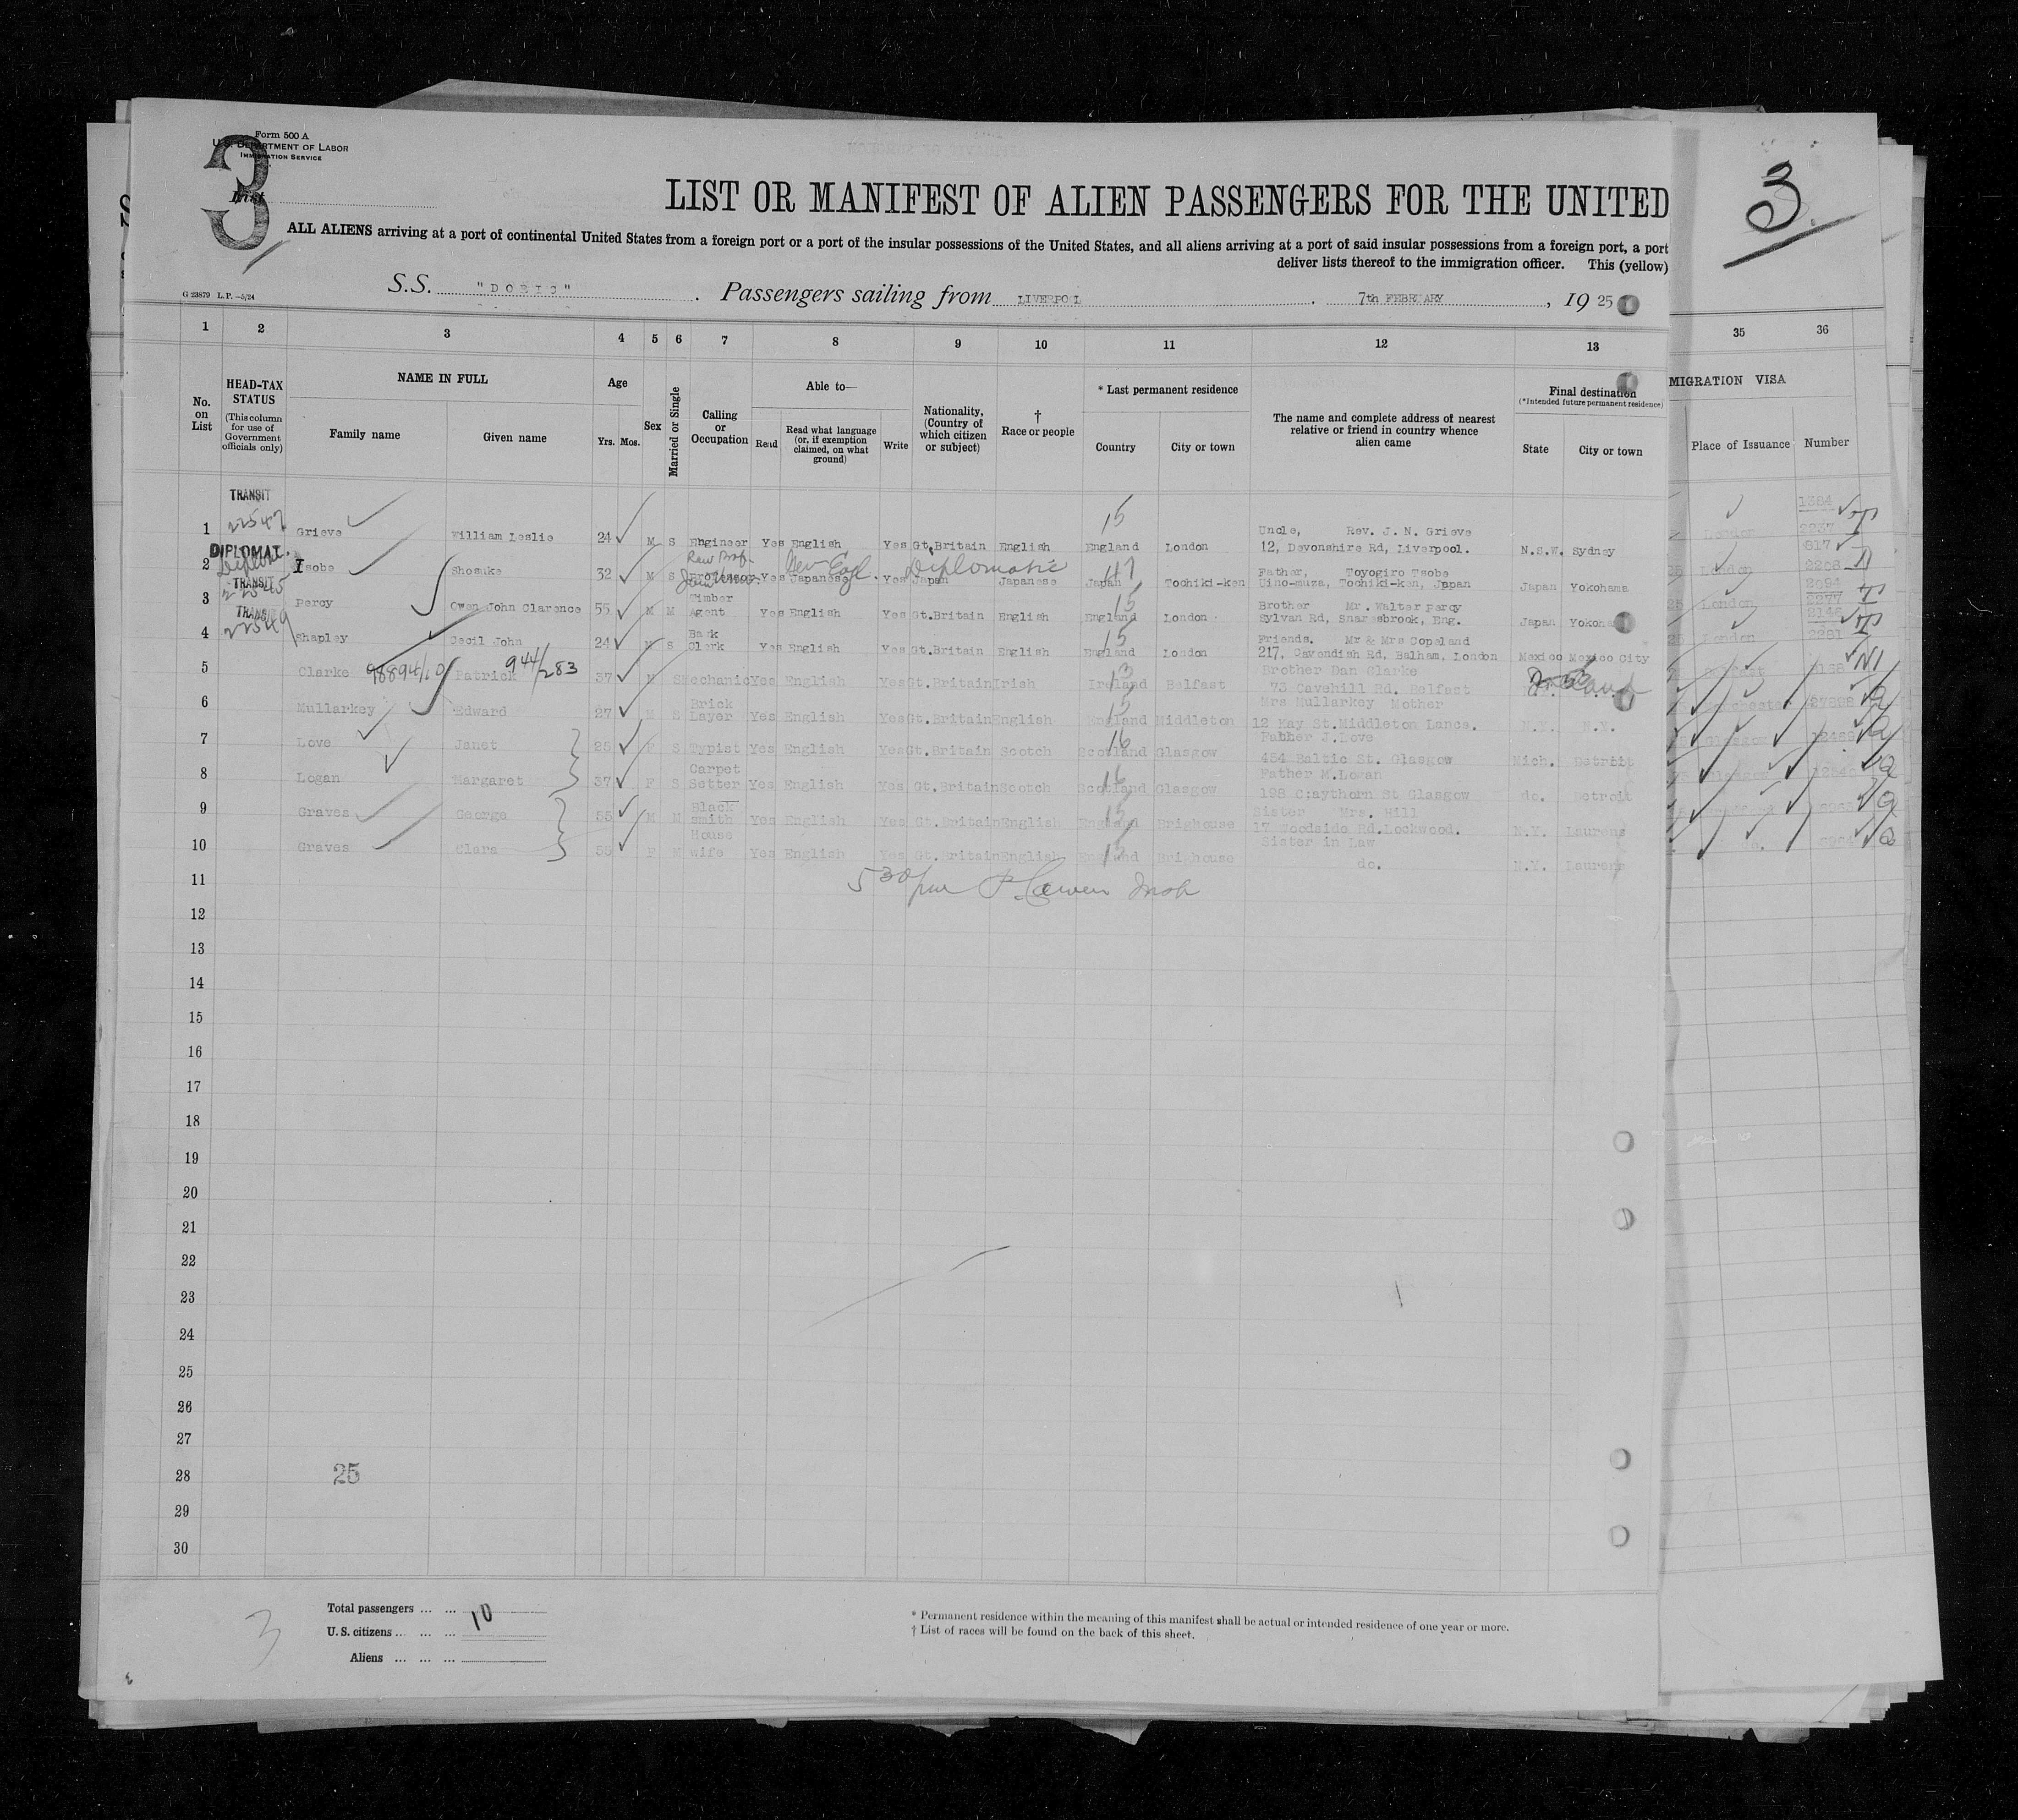 Form 500 A
U.S. DEPARTMENT OF LABOR
IMMIGRATION SERVICE
3
List
LIST OR MANIFEST OF ALIEN PASSENGERS FOR THE UNITED
3
ALL ALIENS arriving at a port of continental United States from a foreign port or a port of the insular possessions of the United States, and all aliens arriving at a port of said insular possessions from a foreign port, a port
deliver lists thereof to the immigration officer. This (yellow)
G 23879 L.P.—5/24
S.S. "DORIC" Passengers sailing from LIVERPOOL, 7th FEBRUARY, 19 25
1 2 3 4 5 6 7 8 9 10 11 12 13 35 36
No. on List
HEAD-TAX STATUS (This column for use of Government officials only)
NAME IN FULL
Family name Given name
Age
Yrs. Mos.
Sex
Married or Single
Calling or Occupation
Able to—
Read Read what language (or, if exemption claimed, on what ground) Write
Nationality, (Country of which citizen or subject)
† Race or people
* Last permanent residence
Country City or town
The name and complete address of nearest relative or friend in country whence alien came
Final destination
(*Intended future permanent residence)
State City or town
MIGRATION VISA
Place of Issuance Number
TRANSIT 15 1384
1 22547 Grieve William Leslie 24 M S Engineer Yes English Yes Gt.Britain English England London Uncle, Rev. J. N. Grieve 12, Devonshire Rd, Liverpool. N.S.W. Sydney London 2237
DIPLOMAT. Diplomatic 817
2 Isobe Shosuke 32 M S Professor Yes Japanese Yes Japan Japanese Japan Tochiki-ken Father, Toyogiro Tsobe Uino-muza, Tochiki-ken, Japan Japan Yokohama London 2258
TRANSIT 22545 15 2094
3 Percy Owen John Clarence 55 M M Timber Agent Yes English Yes Gt.Britain English England London Brother Mr. Walter Percy Sylvan Rd, Snaresbrook, Eng. Japan Yokoha London 2277
TRANSIT 22549 15 2146
4 Shapley Cecil John 24 M S Bank Clerk Yes English Yes Gt.Britain English England London Friends. Mr & Mrs Copeland 217, Cavendish Rd, Balham, London Mexico Mexico City London 2291
5 Clarke 98894/10 Patrick 944/283 37 M S Mechanic Yes English Yes Gt.Britain Irish 13 Ireland Belfast Brother Dan Clarke 73 Cavehill Rd. Belfast
6 Mullarkey Edward 27 M S Brick Layer Yes English Yes Gt.Britain English 15 England Middleton Mrs Mullarkey Mother 12 May St.Middleton Lancs. N.Y. N.Y.
7 Love Janet 25 F S Typist Yes English Yes Gt.Britain Scotch 16 Scotland Glasgow Father J.Love 454 Baltic St. Glasgow Mich. Detroit Glasgow
8 Logan Margaret 37 F S Carpet Setter Yes English Yes Gt.Britain Scotch 16 Scotland Glasgow Father M.Logan 198 C;aythorn St Glasgow do. Detroit
9 Graves George 55 M M Black smith Yes English Yes Gt.Britain English 15 England Brighouse Sister Mrs. Hill 17 Woodside Rd.Lockwood. N.Y. Laurens
10 Graves Clara 55 F M House wife Yes English Yes Gt.Britain English 15 England Brighouse Sister in Law do. N.Y. Laurens
11
12
13
14
15
16
17
18
19
20
21
22
23
24
25
26
27
28 25
29
30
3
Total passengers ... ... 10
U.S. citizens ... ... ...
Aliens ... ... ...
* Permanent residence within the meaning of this manifest shall be actual or intended residence of one year or more.
† List of races will be found on the back of this sheet.